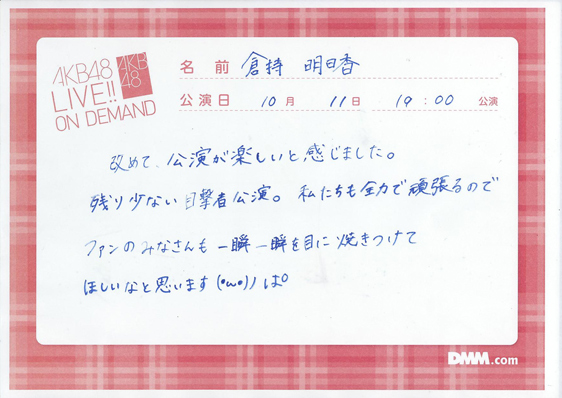 AKB48
LIVE!!
ON DEMAND
AKB
48
名前 倉持 明日香
公演日 10月 11日 19:00 公演
改めて、公演が楽しいと感じました。
残り少ない目撃者公演。私たちも全力で頑張るので
ファンのみなさんも一瞬一瞬を目に焼きつけて
ほしいなと思います(•ω•)ノ ぱ
DMM.com